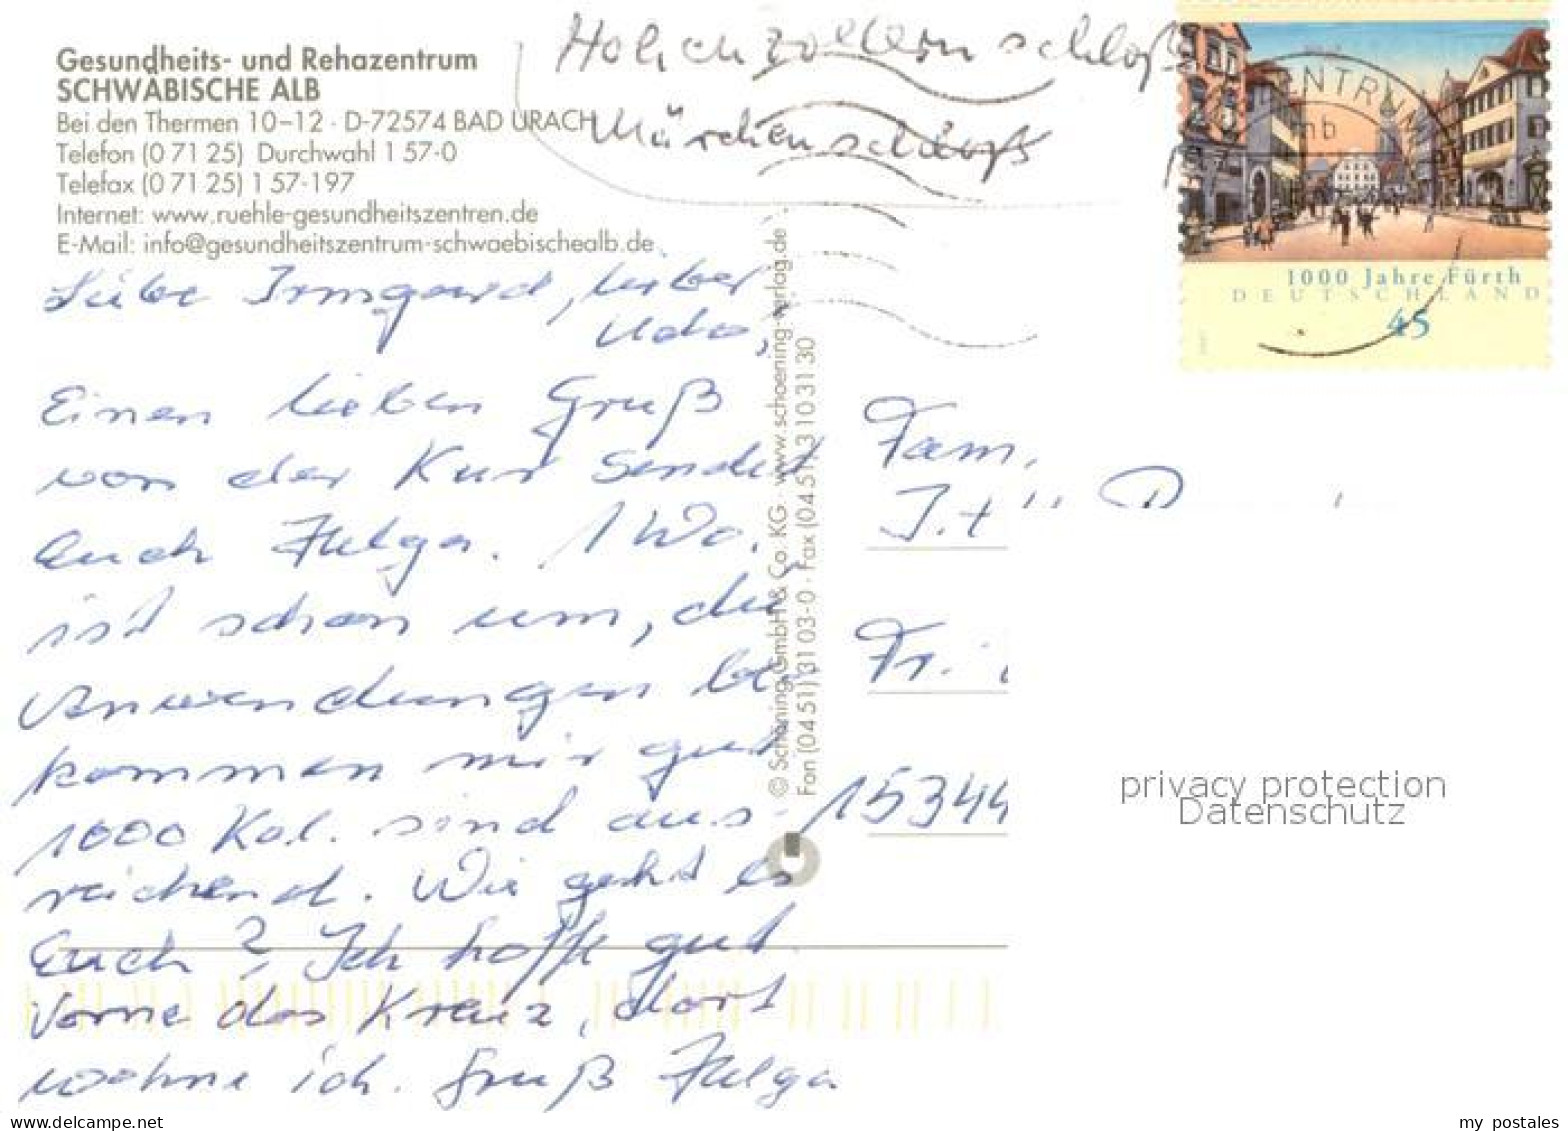 Gesundheits- und Rehazentrum
SCHWÄBISCHE ALB
Bei den Thermen 10–12 · D-72574 BAD URACH
Telefon (0 71 25) Durchwahl 1 57-0
Telefax (0 71 25) 1 57-197
Internet: www.ruehle-gesundheitszentren.de
E-Mail: info@gesundheitszentrum-schwaebischealb.de
Hohenzollernschloß
Märchenschloß
ENTRUM
mb
1000 Jahre Fürth
DEUTSCHLAND
45
Liebe Irmgard, lieber
Udo,
Einen lieben Gruß
von der Kur sendet
Euch Helga. 1 Wo.
ist schon um, die
Anwendungen be-
kommen mir gut
1000 Kal. sind aus-
reichend. Wie geht es
Euch? Ich hoffe gut
Vorne das Kreuz, dort
wohne ich. Gruß Helga
© Schöning GmbH & Co. KG · www.schoening-verlag.de
Fon (04 51) 3 1 03-0 · Fax (04 51) 3 10 31 30
Fam.
I. + U.
Fr.
15344
privacy protection
Datenschutz
my postales